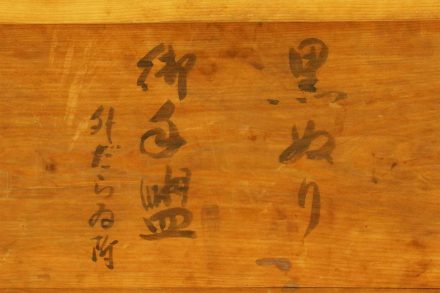 黒ぬり
御手盥
外だらゐ附